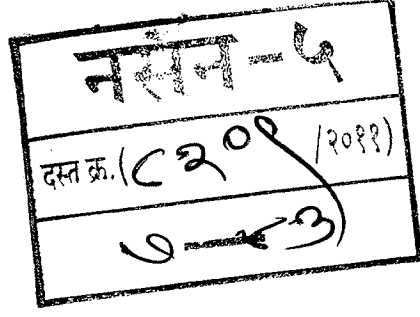 नसन-५
दस्त क्र.(८२०९/२०११)
७-४३